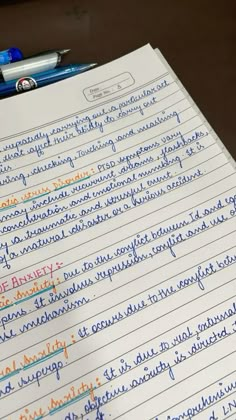 Date:
Page No. 3
repeatedly carrying out a particular act
that affect their ability to carry out
ing, checking, Touching and washing
stress disorder: PTSD symptoms vary
may include recurrent dreams, flashbacks,
concentration and emotional numbing. It is
by a traumatic and stressful event
of a natural disaster or a serious accident.
OF ANXIETY :-
Anxiety : Due to the conflict between Id and ego
It involves repression, conflict and use of
mechanism.
Anxiety : It occurs due to the conflict between
and superego.
Anxiety : It is due to real, external
objective anxiety is
comprehensive